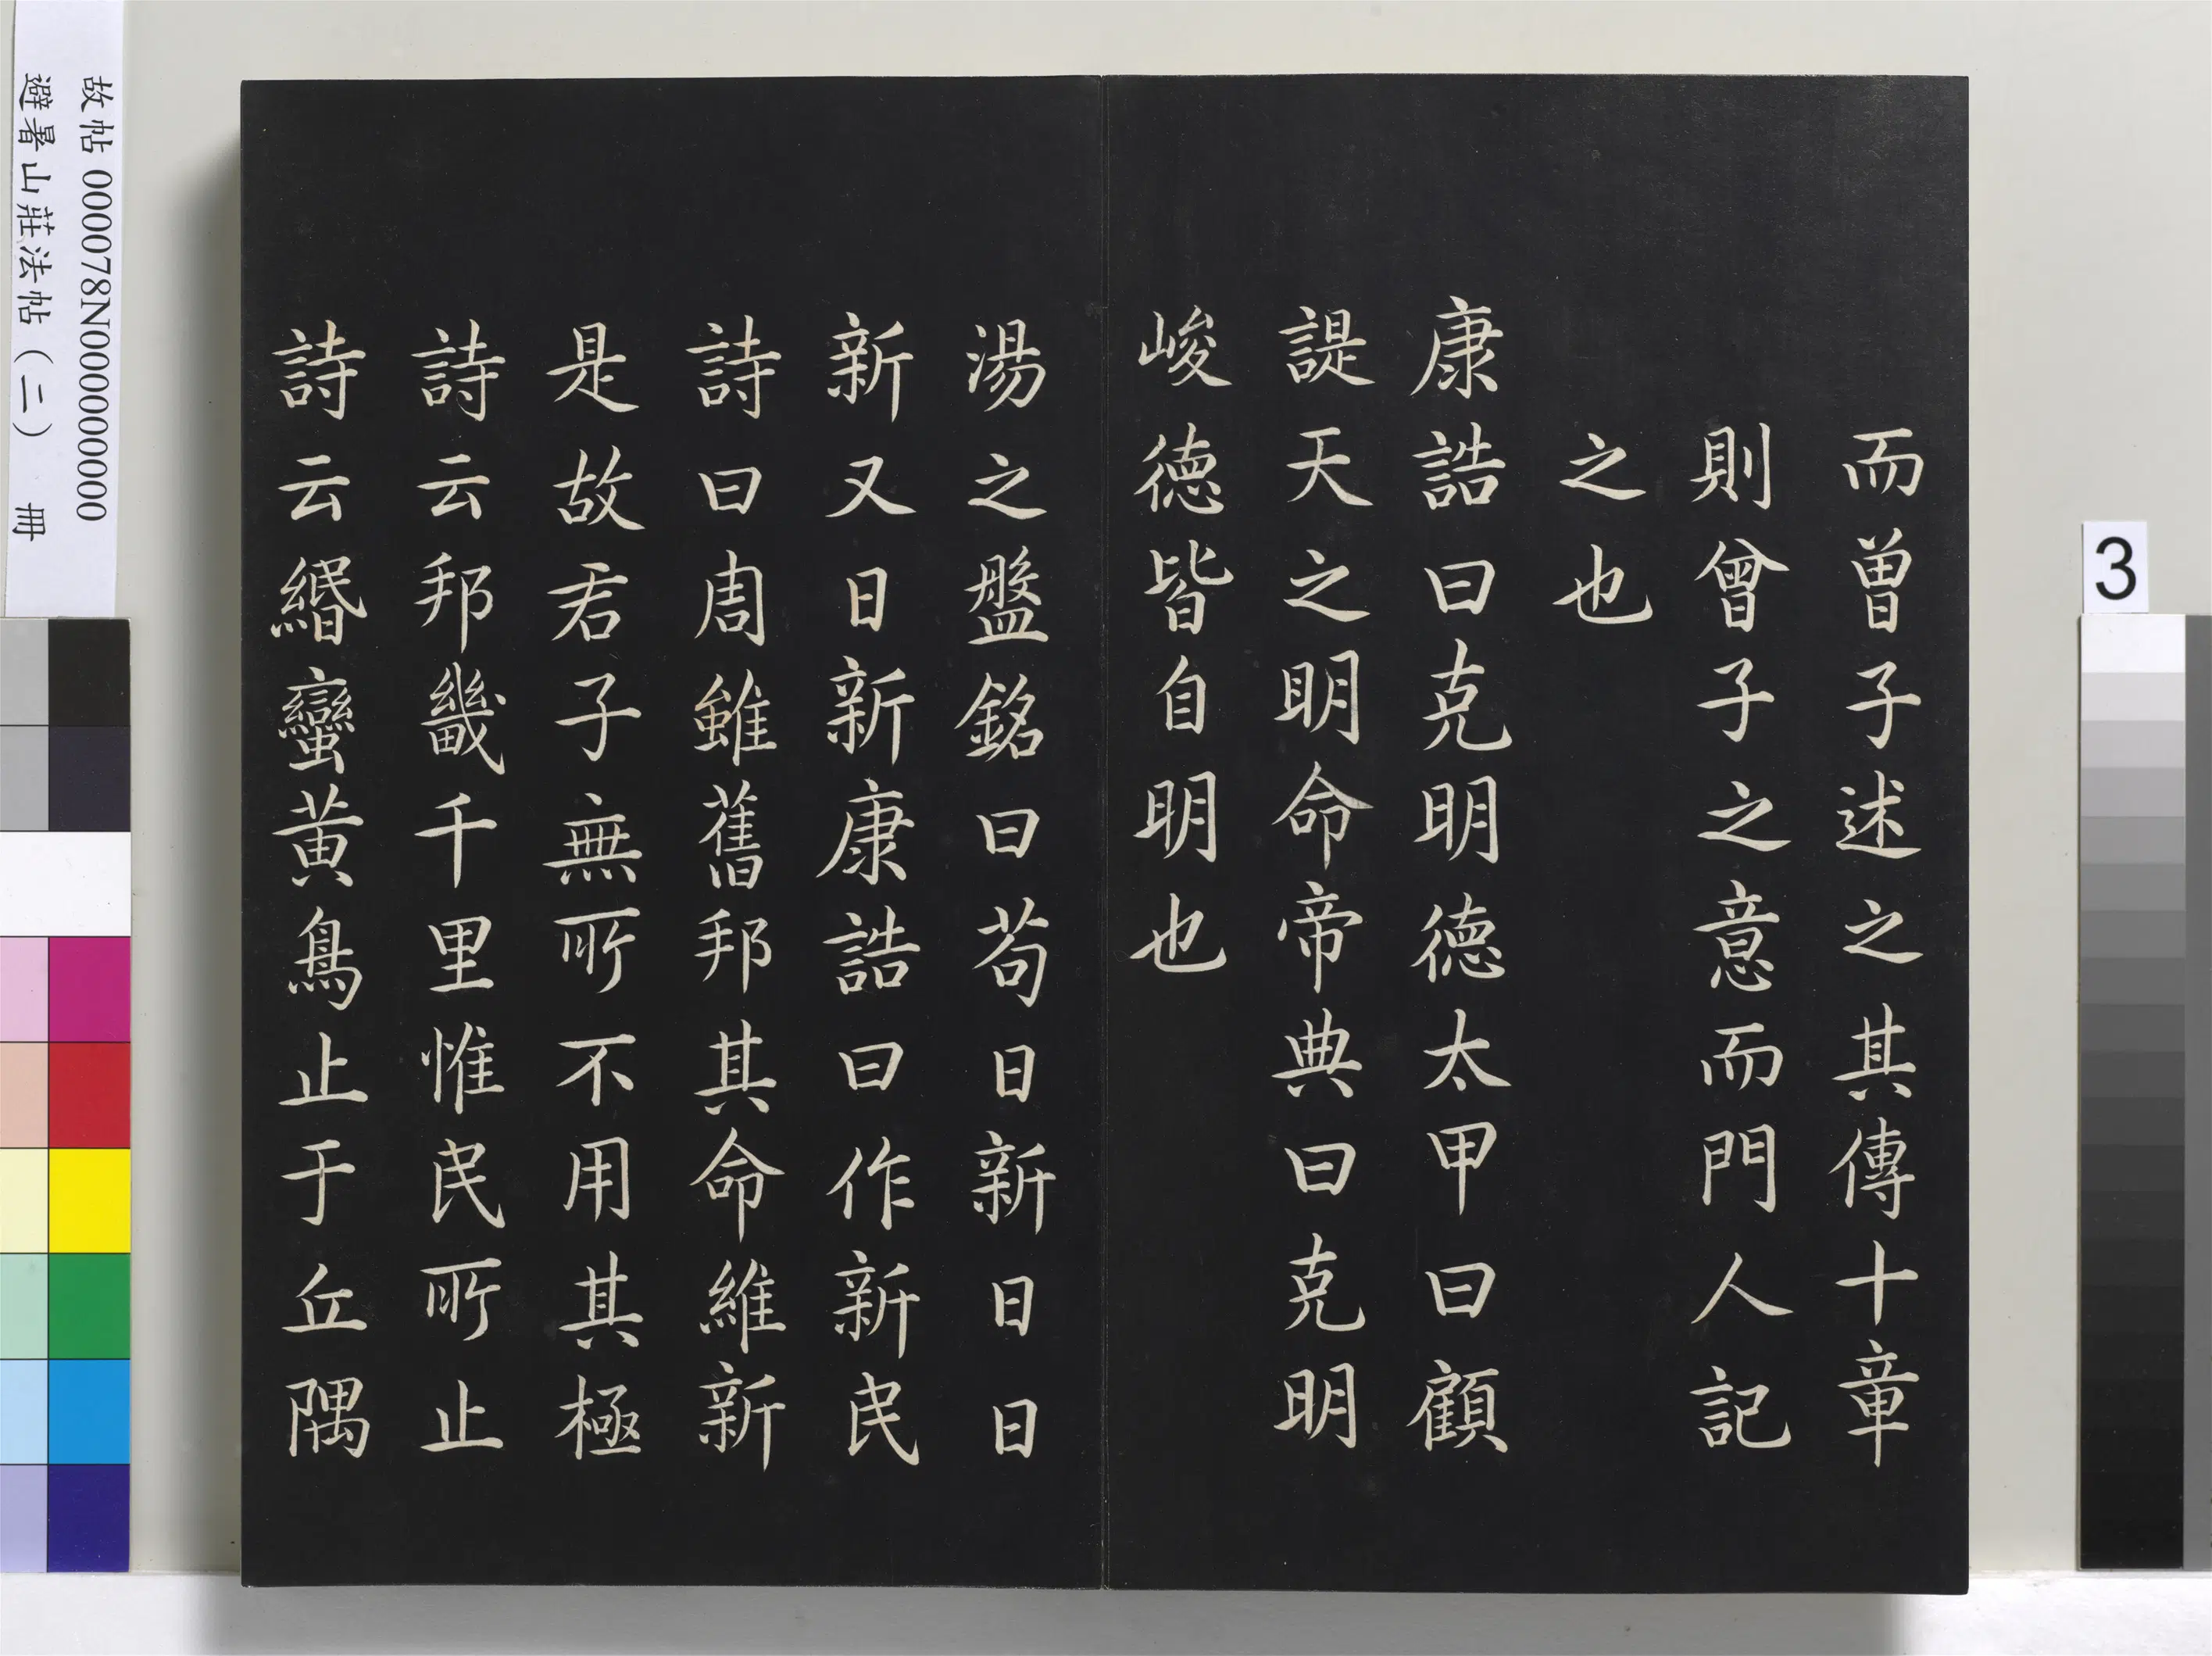 而曾子述之其傳十章
則曾子之意而門人記
之也
康誥曰克明德太甲曰顧
諟天之明命帝典曰克明
峻德皆自明也
湯之盤銘曰苟日新日日
新又日新康誥曰作新民
詩曰周雖舊邦其命維新
是故君子無所不用其極
詩云邦畿千里惟民所止
詩云緡蠻黃鳥止于丘隅
故帖 000078N000000000
避暑山莊法帖（二） 冊
3